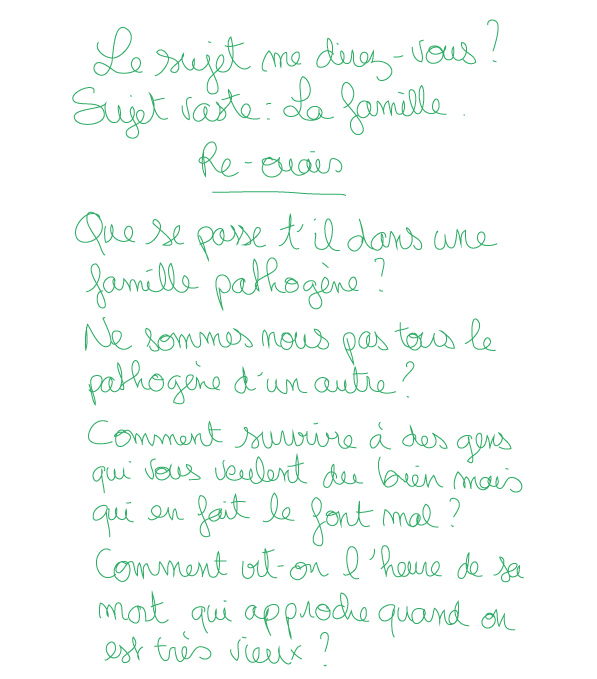 Le sujet me direz-vous ?
Sujet vaste : La famille .
Re-ouais
Que se passe t'il dans une
famille pathogène ?
Ne sommes nous pas tous le
pathogène d'un autre ?
Comment survivre à des gens
qui vous veulent du bien mais
qui en fait le font mal ?
Comment vit-on l'heure de sa
mort qui approche quand on
est très vieux ?